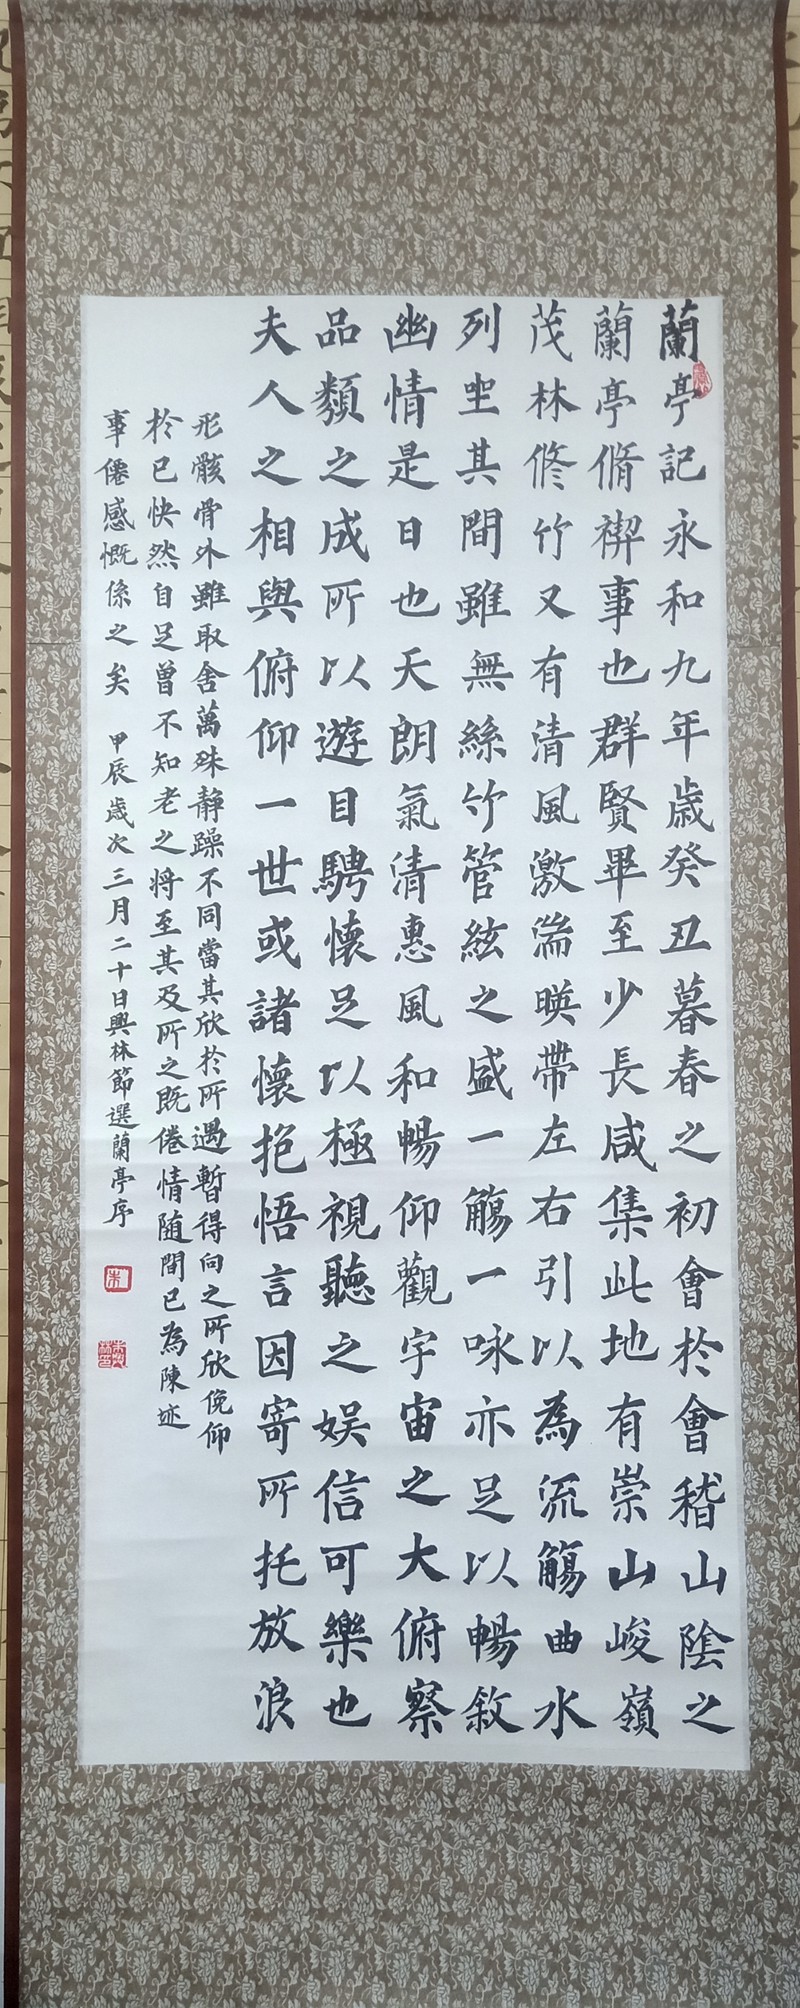 蘭亭記永和九年歲癸丑暮春之初會於會稽山陰之
蘭亭脩禊事也群賢畢至少長咸集此地有崇山峻嶺
茂林修竹又有清風激湍暎帶左右引以為流觴曲水
列坐其間雖無絲竹管絃之盛一觴一咏亦足以暢敘
幽情是日也天朗氣清惠風和暢仰觀宇宙之大俯察
品類之成所以遊目騁懷足以極視聽之娛信可樂也
夫人之相與俯仰一世或諸懷抱悟言因寄所托放浪
形骸骨外雖取舍萬殊靜躁不同當其欣於所遇暫得向之所欣俛仰
於已快然自足曾不知老之將至其及所之既倦情随間已為陳迹
事倦感慨係之矣 甲辰歲次三月二十日興林節選蘭亭序
朱